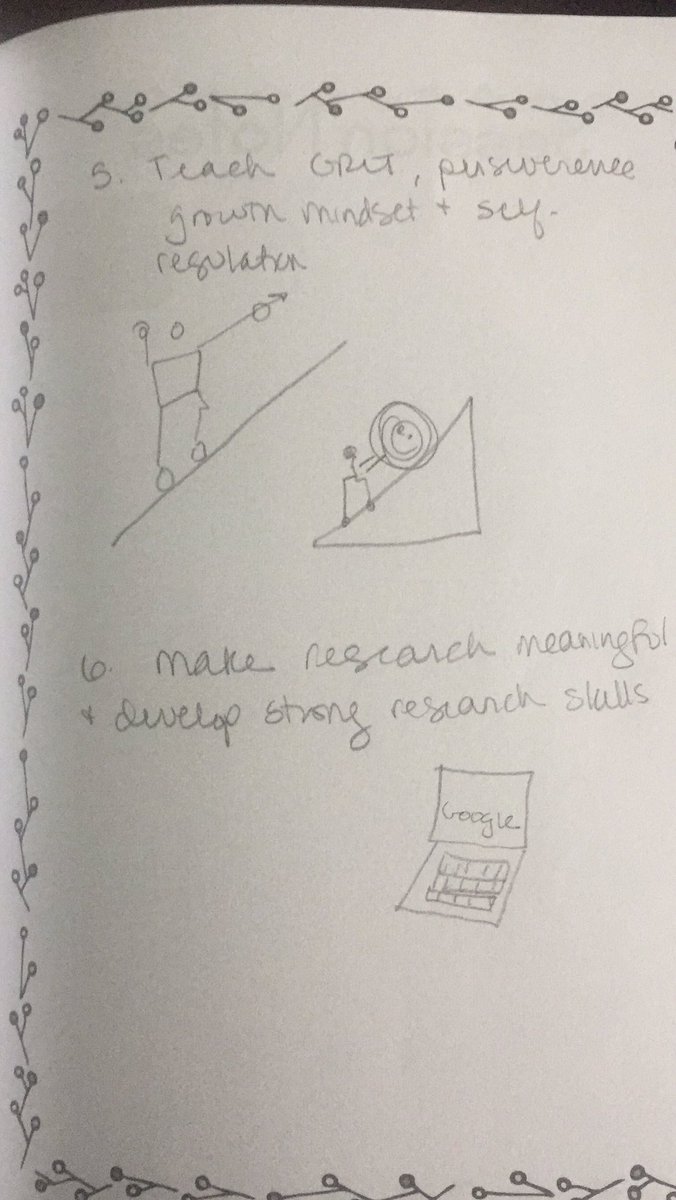 5. Teach GRIT, perserverence
growth mindset + self-
regulation
6. make research meaningful
+ develop strong research skills
Google